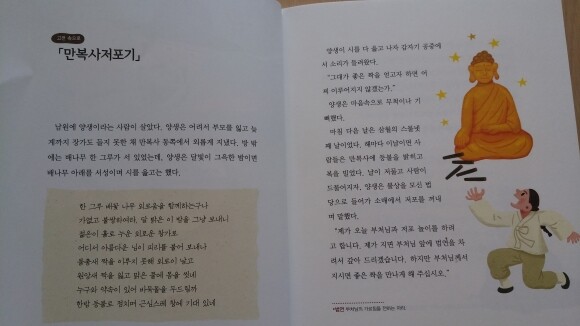 고전 속으로
「만복사저포기」
남원에 양생이라는 사람이 살았다. 양생은 어려서 부모를 잃고 늦
게까지 장가도 들지 못한 채 만복사 동쪽에서 외롭게 지냈다. 방 밖
에는 배나무 한 그루가 서 있었는데, 양생은 달빛이 그윽한 밤이면
배나무 아래를 서성이며 시를 읊고는 했다.
한 그루 배꽃 나무 외로움을 함께하는구나
가엾고 불쌍하여라, 달 밝은 이 밤을 그냥 보내니
젊은이 홀로 누운 외로운 창가로
어디서 아름다운 님이 피리를 불어 보내나
물총새 짝을 이루지 못해 외로이 날고
원앙새 짝을 잃고 맑은 물에 몸을 씻네
누구와 약속이 있어 바둑돌을 두드릴까
한밤 등불로 점치며 근심스레 창에 기대 있네
양생이 시를 다 읊고 나자 갑자기 공중에
서 소리가 들려왔다.
“그대가 좋은 짝을 얻고자 하면 어
찌 이루어지지 않겠는가.”
양생은 마음속으로 무척이나 기
뻐했다.
마침 다음 날은 삼월의 스물넷
째 날이었다. 해마다 이날이면 사
람들은 만복사에 등불을 밝히고
복을 빌었다. 날이 저물고 사람이
드물어지자, 양생은 불상을 모신 법
당으로 들어가 소매에서 저포를 꺼내
며 말했다.
“제가 오늘 부처님과 저포 놀이를 하려
고 합니다. 제가 지면 부처님 앞에 법연을 차
려서 갚아 드리겠습니다. 하지만 부처님께서
지시면 좋은 짝을 만나게 해 주십시오.”
*법연 부처님의 가르침을 전하는 자리.